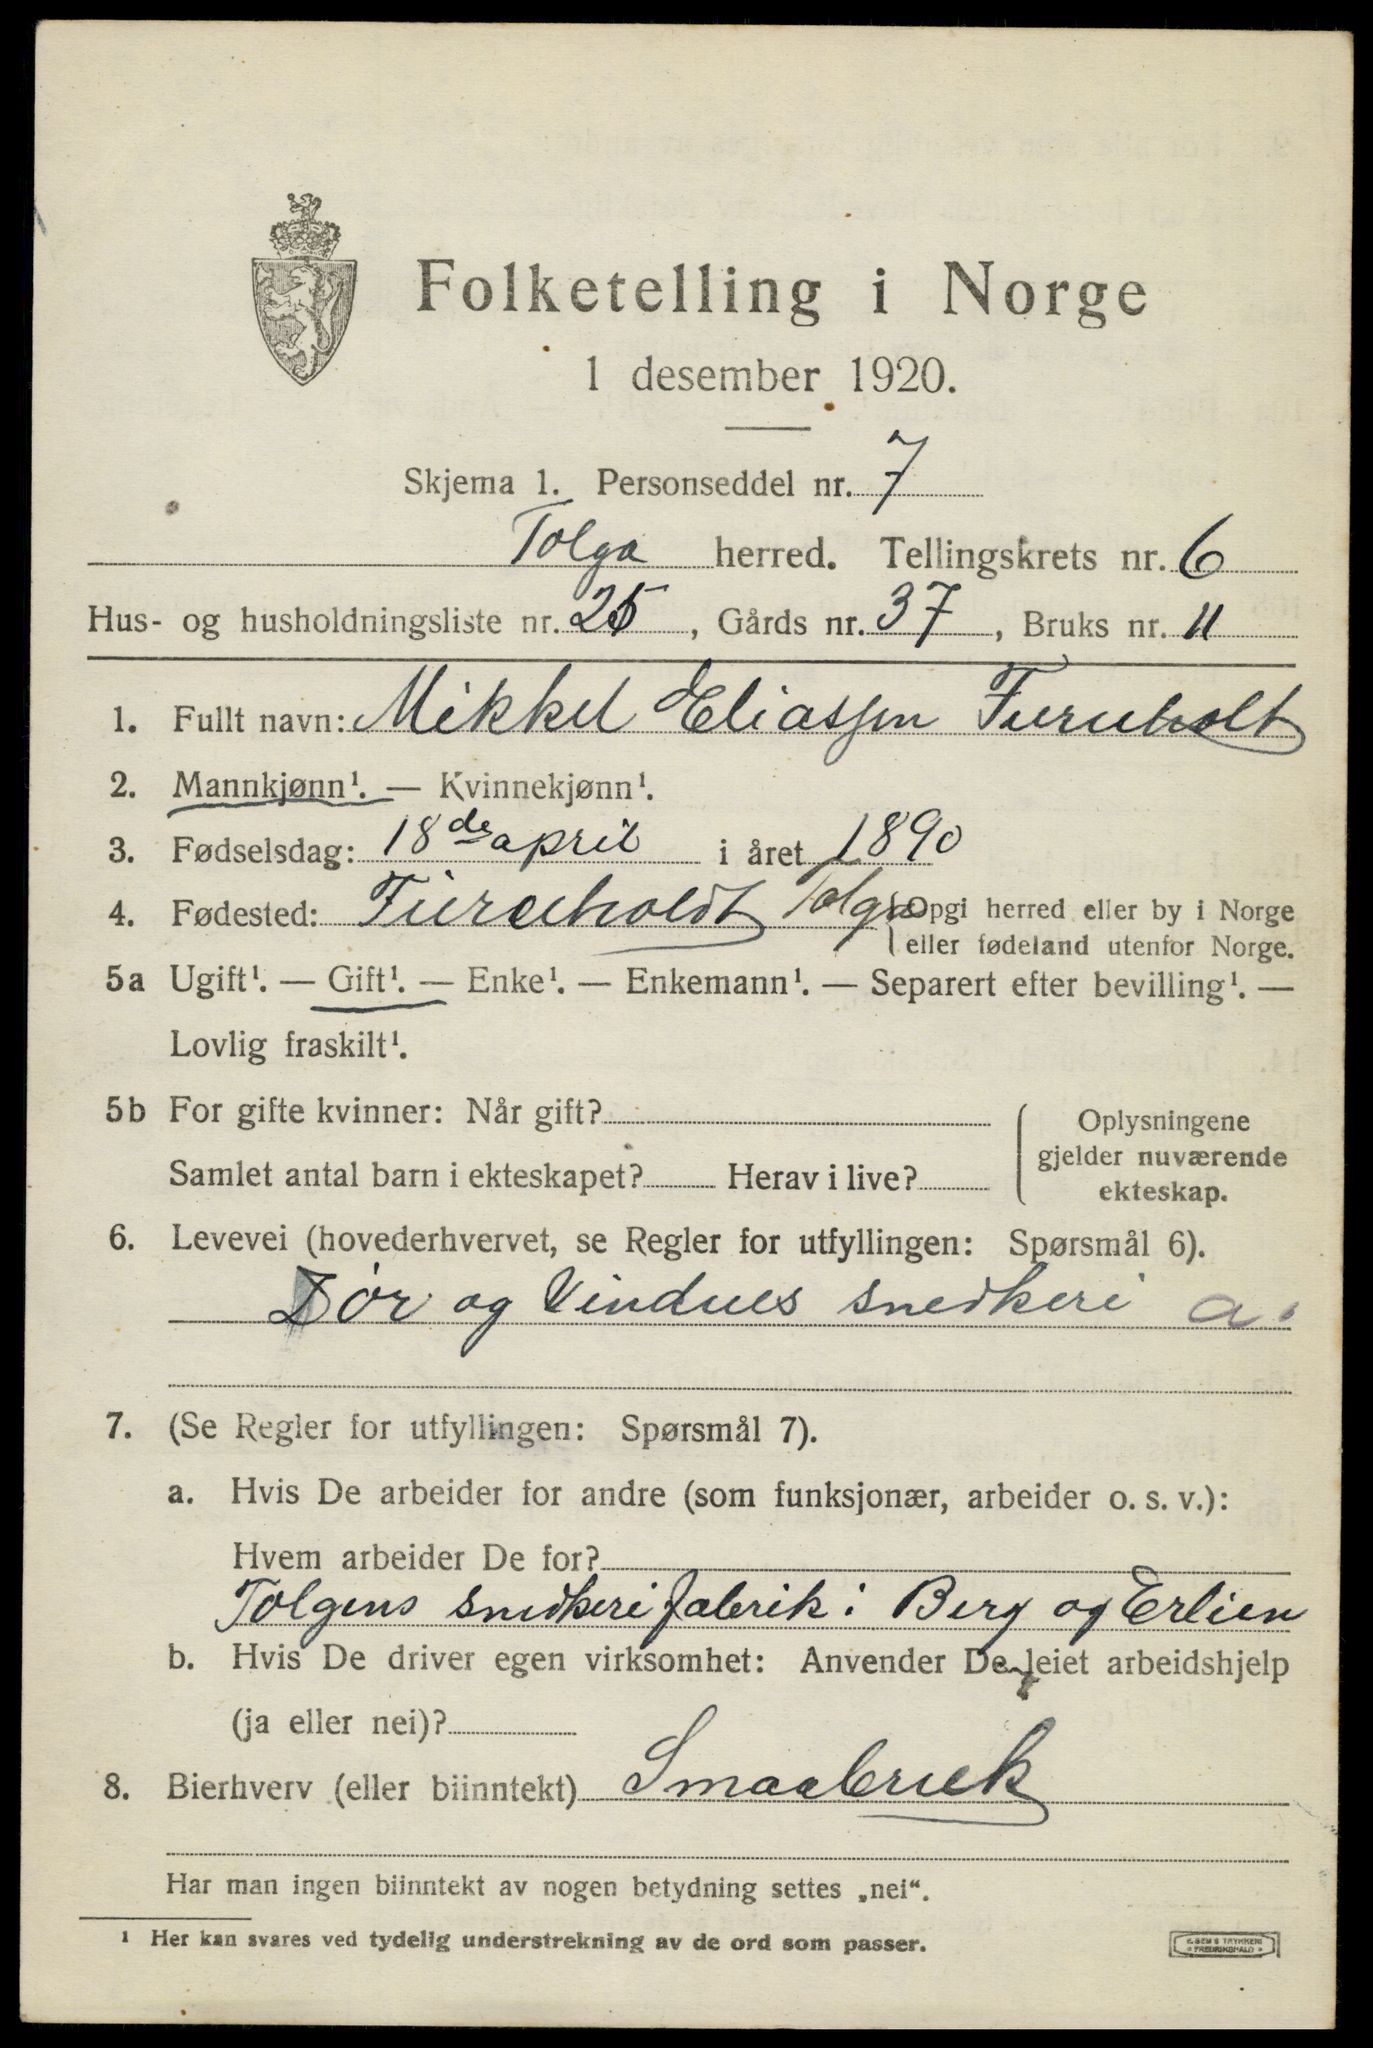 Folketelling i Norge
1 desember 1920.
Skjema 1. Personseddel nr. 7
Tolga herred. Tellingskrets nr. 6
Hus- og husholdningsliste nr. 25, Gårds nr. 37, Bruks nr. 11
1. Fullt navn: Mikkel Eliassen Furuholt
2. Mannkjønn¹. — Kvinnekjønn¹.
3. Fødselsdag: 18de april i året 1890
4. Fødested: Furuholdt Tolga {Opgi herred eller by i Norge
eller fødeland utenfor Norge.
5a Ugift¹. — Gift¹. — Enke¹. — Enkemann¹. — Separert efter bevilling¹. —
Lovlig fraskilt¹.
5b For gifte kvinner: Når gift?
Samlet antal barn i ekteskapet? Herav i live?
Oplysningene
gjelder nuværende
ekteskap.
6. Levevei (hovederhvervet, se Regler for utfyllingen: Spørsmål 6).
Dør og Vindues snedkeri a.
7. (Se Regler for utfyllingen: Spørsmål 7).
a. Hvis De arbeider for andre (som funksjonær, arbeider o. s. v.):
Hvem arbeider De for?
Tolgens snedkerifabrik: Berg og Erlien
b. Hvis De driver egen virksomhet: Anvender De leiet arbeidshjelp
(ja eller nei)?
8. Bierhverv (eller biinntekt) Smaabruk
Har man ingen biinntekt av nogen betydning settes „nei“.
¹ Her kan svares ved tydelig understrekning av de ord som passer.
E. SEM'S TRYKKERI
FREDRIKSHALD